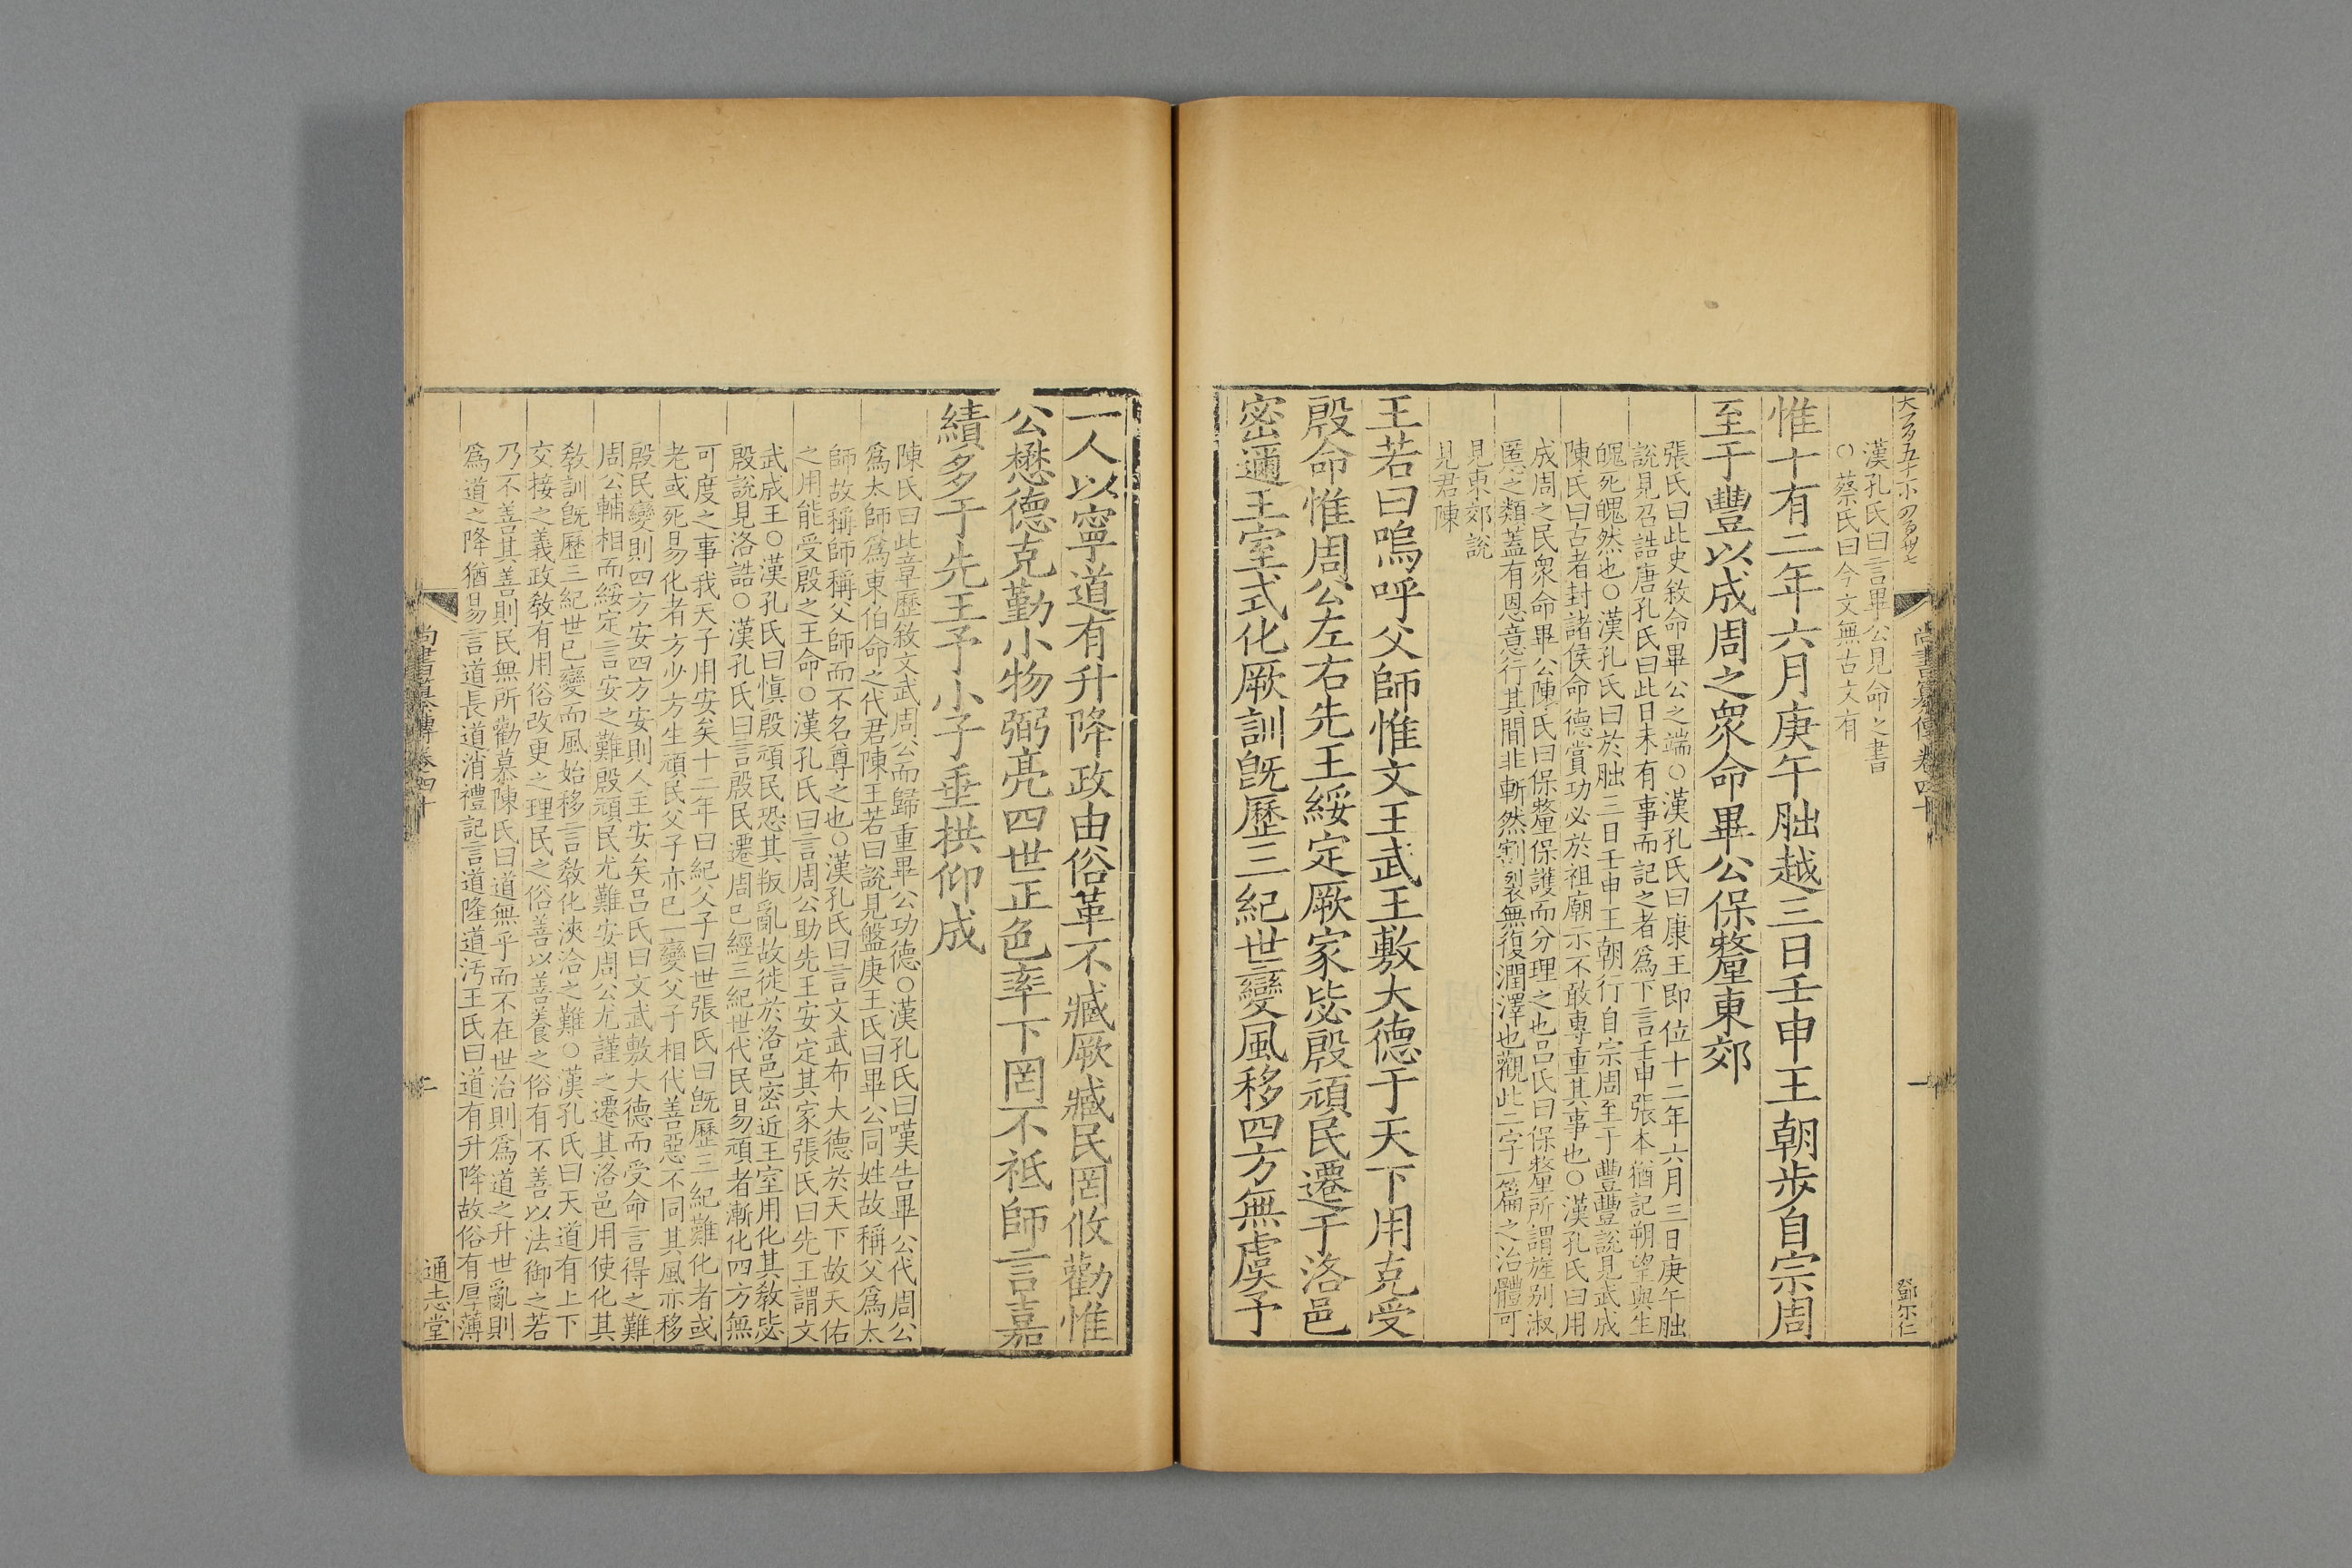 尚書纂傳卷四十
一
鄧尔仁
漢孔氏曰言畢公見命之書
○蔡氏曰今文無古文有
惟十有二年六月庚午朏越三日壬申王朝步自宗周
至于豐以成周之衆命畢公保釐東郊
張氏曰此史敘命畢公之端○漢孔氏曰康王即位十二年六月三日庚午朏
說見召誥唐孔氏曰此日未有事而記之者爲下言壬申張本猶記朔望與生
魄死魄然也○漢孔氏曰於朏三日壬申王朝行自宗周至于豐豐說見武成
陳氏曰古者封諸侯命德賞功必於祖廟示不敢專重其事也○漢孔氏曰用
成周之民衆命畢公陳氏曰保釐保護而分理之也呂氏曰保釐所謂旌别淑
慝之類蓋有恩意行其間非斬然割裂無復潤澤也觀此二字一篇之治體可
見東郊說
見君陳
王若曰嗚呼父師惟文王武王敷大德于天下用克受
殷命惟周公左右先王綏定厥家毖殷頑民遷于洛邑
密邇王室式化厥訓旣歷三紀世變風移四方無虞予
一人以寧道有升降政由俗革不臧厥臧民罔攸勸惟
公懋德克勤小物弼亮四世正色率下罔不祗師言嘉
績多于先王予小子垂拱仰成
陳氏曰此章歷敘文武周公而歸重畢公功德○漢孔氏曰嘆告畢公代周公
爲太師爲東伯命之代君陳王若曰說見盤庚王氏曰畢公同姓故稱父爲太
師故稱師稱父師而不名尊之也○漢孔氏曰言文武布大德於天下故天佑
之用能受殷之王命○漢孔氏曰言周公助先王安定其家張氏曰先王謂文
武成王○漢孔氏曰愼殷頑民恐其叛亂故徙於洛邑密近王室用化其敎毖
殷說見洛誥○漢孔氏曰言殷民遷周已經三紀世代民易頑者漸化四方無
可度之事我天子用安矣十二年曰紀父子曰世張氏曰旣歷三紀難化者或
老或死易化者方少方生頑民父子亦已一變父子相代善惡不同其風亦移
殷民變則四方安四方安則人主安矣呂氏曰文武敷大德而受命言得之難
周公輔相而綏定言安之難殷頑民尤難安周公尤謹之遷其洛邑用使化其
敎訓旣歷三紀世已變而風始移言敎化浹洽之難○漢孔氏曰天道有上下
交接之義政敎有用俗改更之理民之俗善以善養之俗有不善以法御之若
乃不善其善則民無所勸慕陳氏曰道無乎而不在世治則爲道之升世亂則
爲道之降猶易言道長道消禮記言道隆道汚王氏曰道有升降故俗有厚薄
尚書纂傳卷四十
二
通志堂